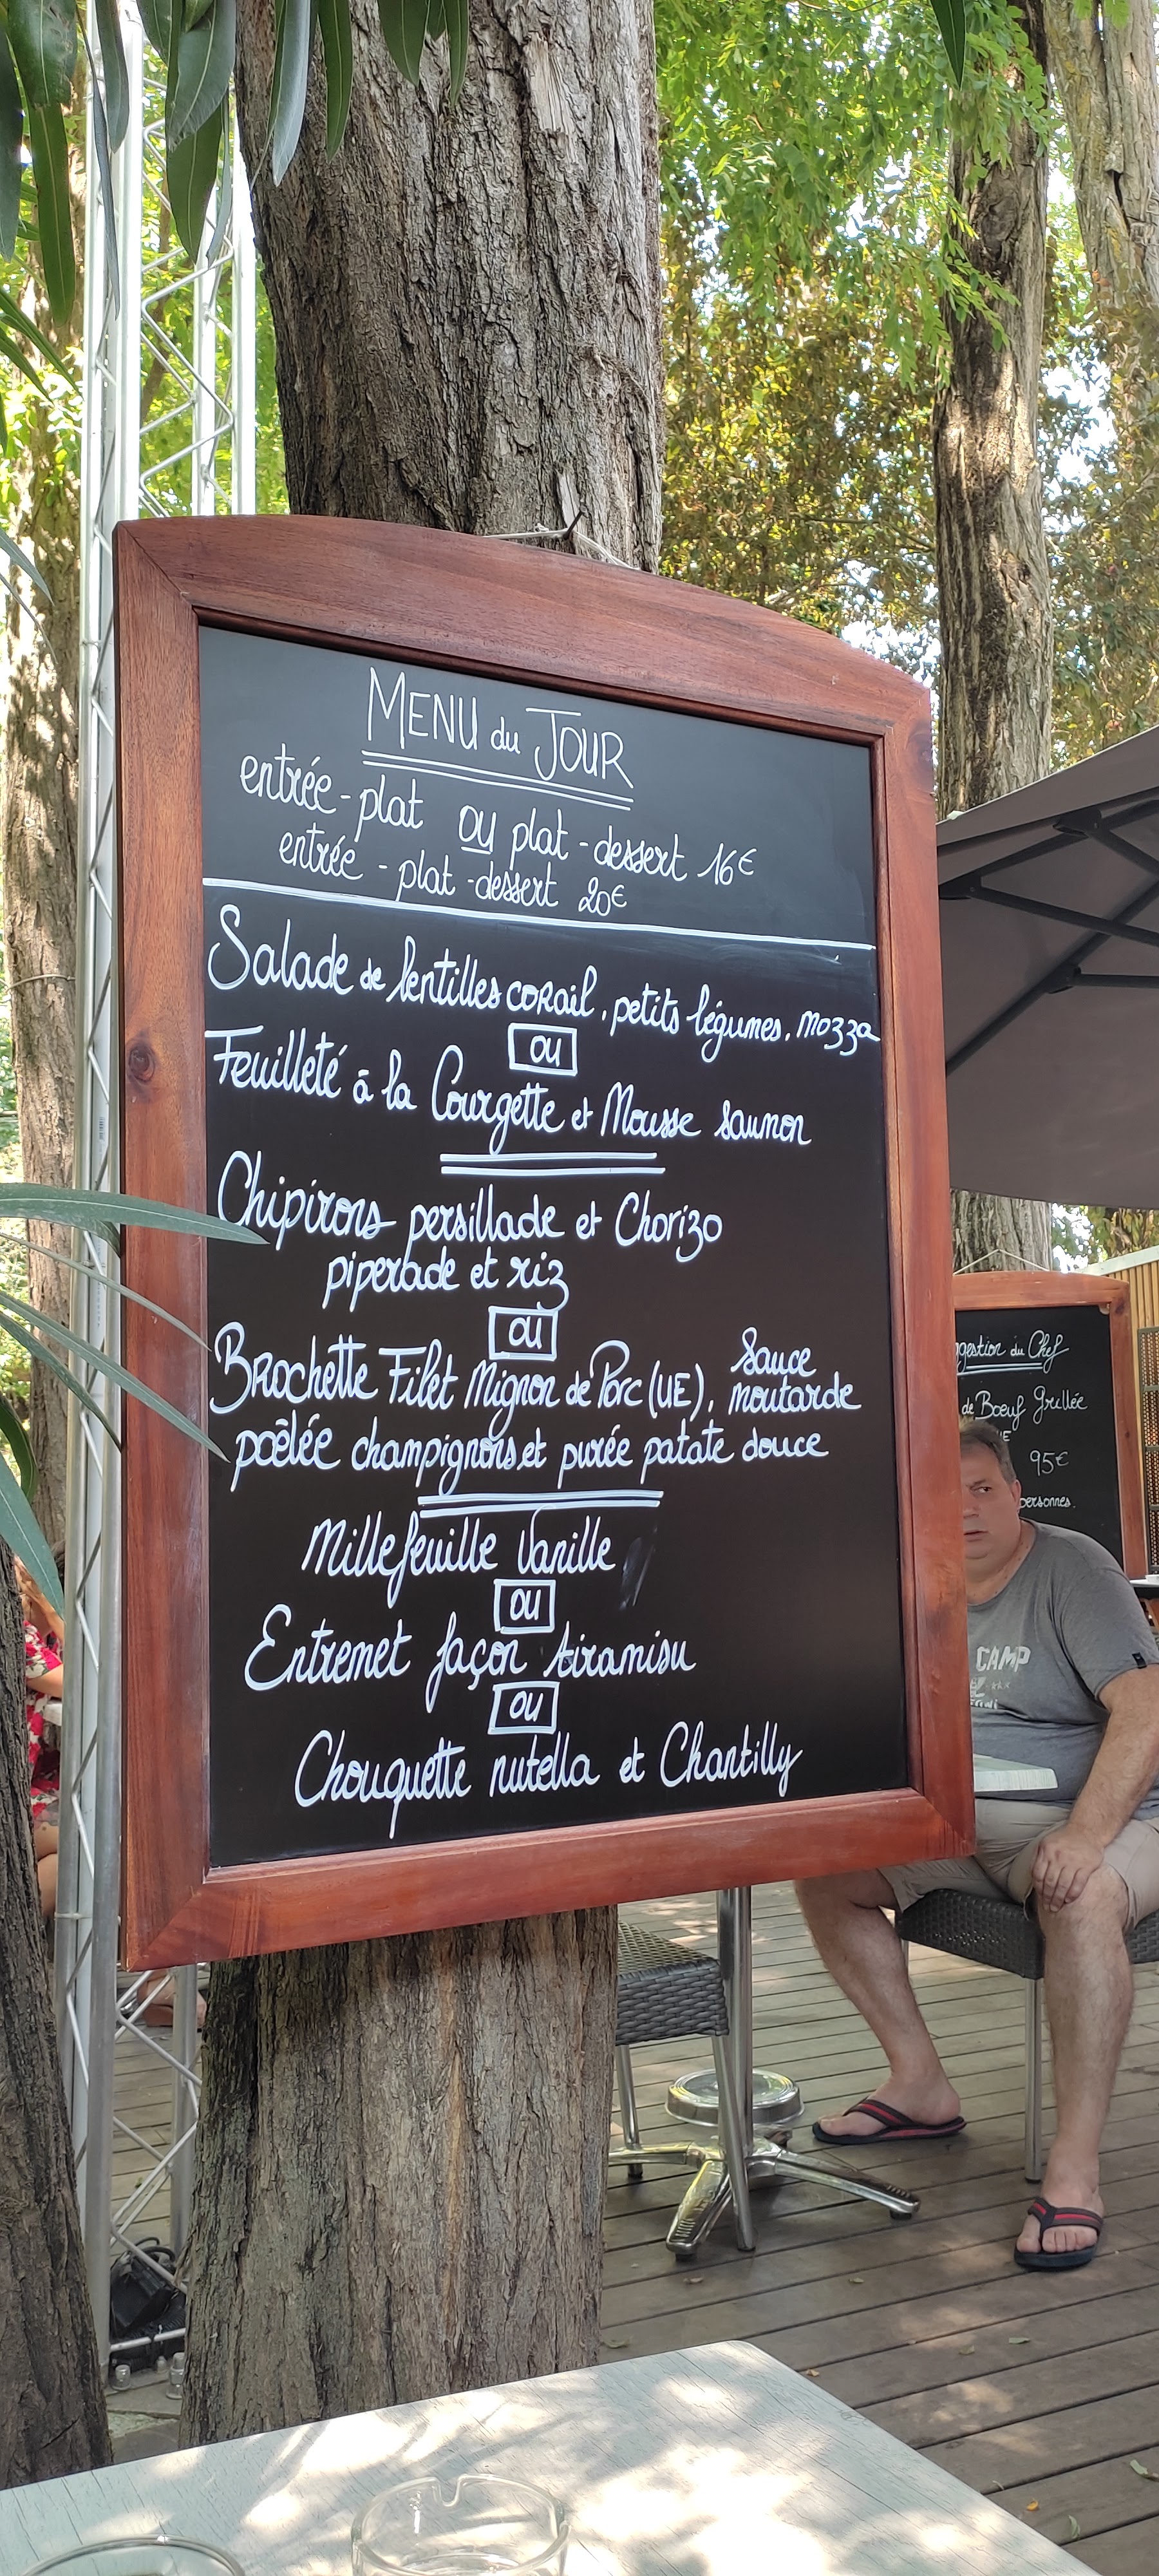 MENU du JOUR
entrée - plat ou plat - dessert 16€
entrée - plat - dessert 20€
Salade de lentilles corail, petits légumes, mozza
ou
Feuilleté à la Courgette et Mousse saumon
Chipirons persillade et Chorizo
piperade et riz
ou
Brochette Filet Mignon de Porc (UE), sauce moutarde
poêlée champignons et purée patate douce
Millefeuille Vanille
ou
Entremet façon tiramisu
ou
Chouquette nutella et Chantilly
du Chef
de Bœuf Grillée
95€
personnes.
CAMP